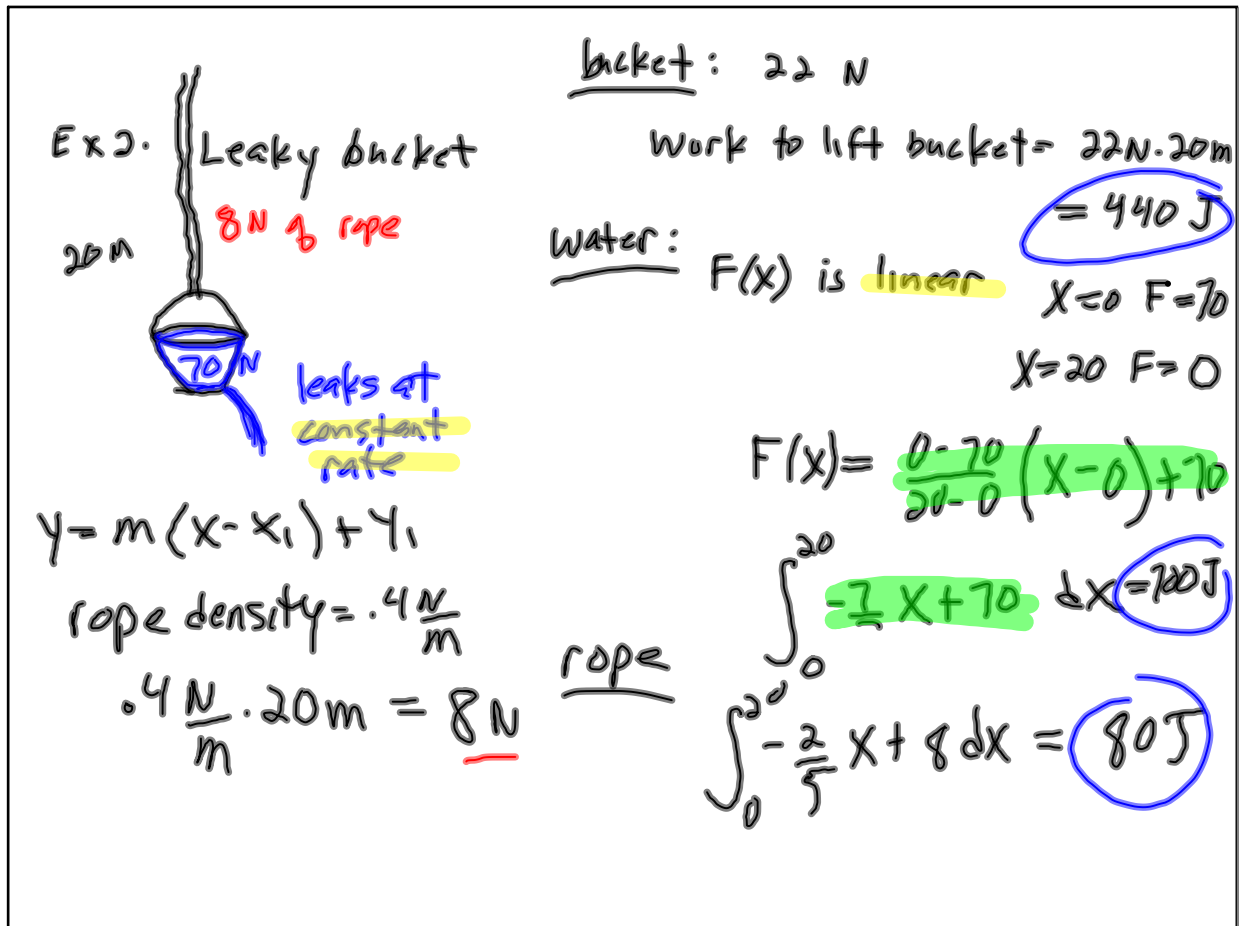 Ex 2.
Leaky bucket
8N of rope
20 M
70 N
leaks at
constant
rate
y = m(x - x₁) + y₁
rope density = .4 N/m
.4 N/m · 20m = 8N
bucket: 22 N
Work to lift bucket = 22N·20m
= 440 J
water: F(x) is linear
x=0 F=70
x=20 F=0
F(x) = (0-70)/(20-0) (x-0)+70
∫₀²⁰ -7/2 x+70 dx = 700J
rope
∫₀²⁰ -2/5 x + 8 dx = 80J